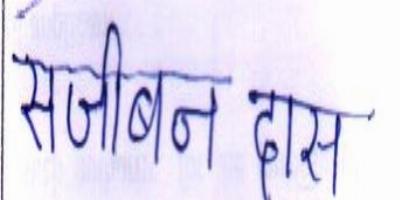 सजीबन दास